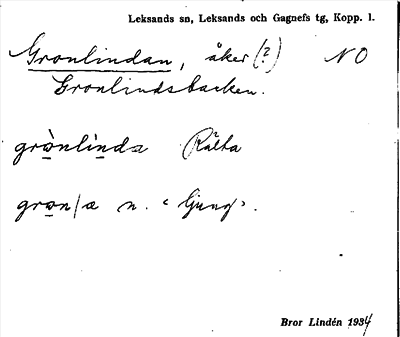 Leksands sn, Leksands och Gagnefs tg, Kopp. l.
Gronlindan, åker (?) NO
Gronlindsbacken.
grònlìnda Rälta
gron/a n. ‘ljung’.
Bror Lindén 1934